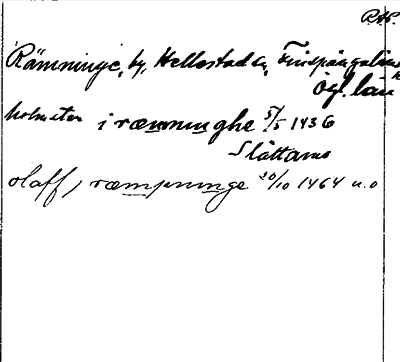 RAP.
Rämninge, by, Hellestad sn, Finspångaläns
Ögl. län
holmsten i ræmninghe 5/5 1436
Slättamo
olaff j ræmpninge 20/10 1464 u.o